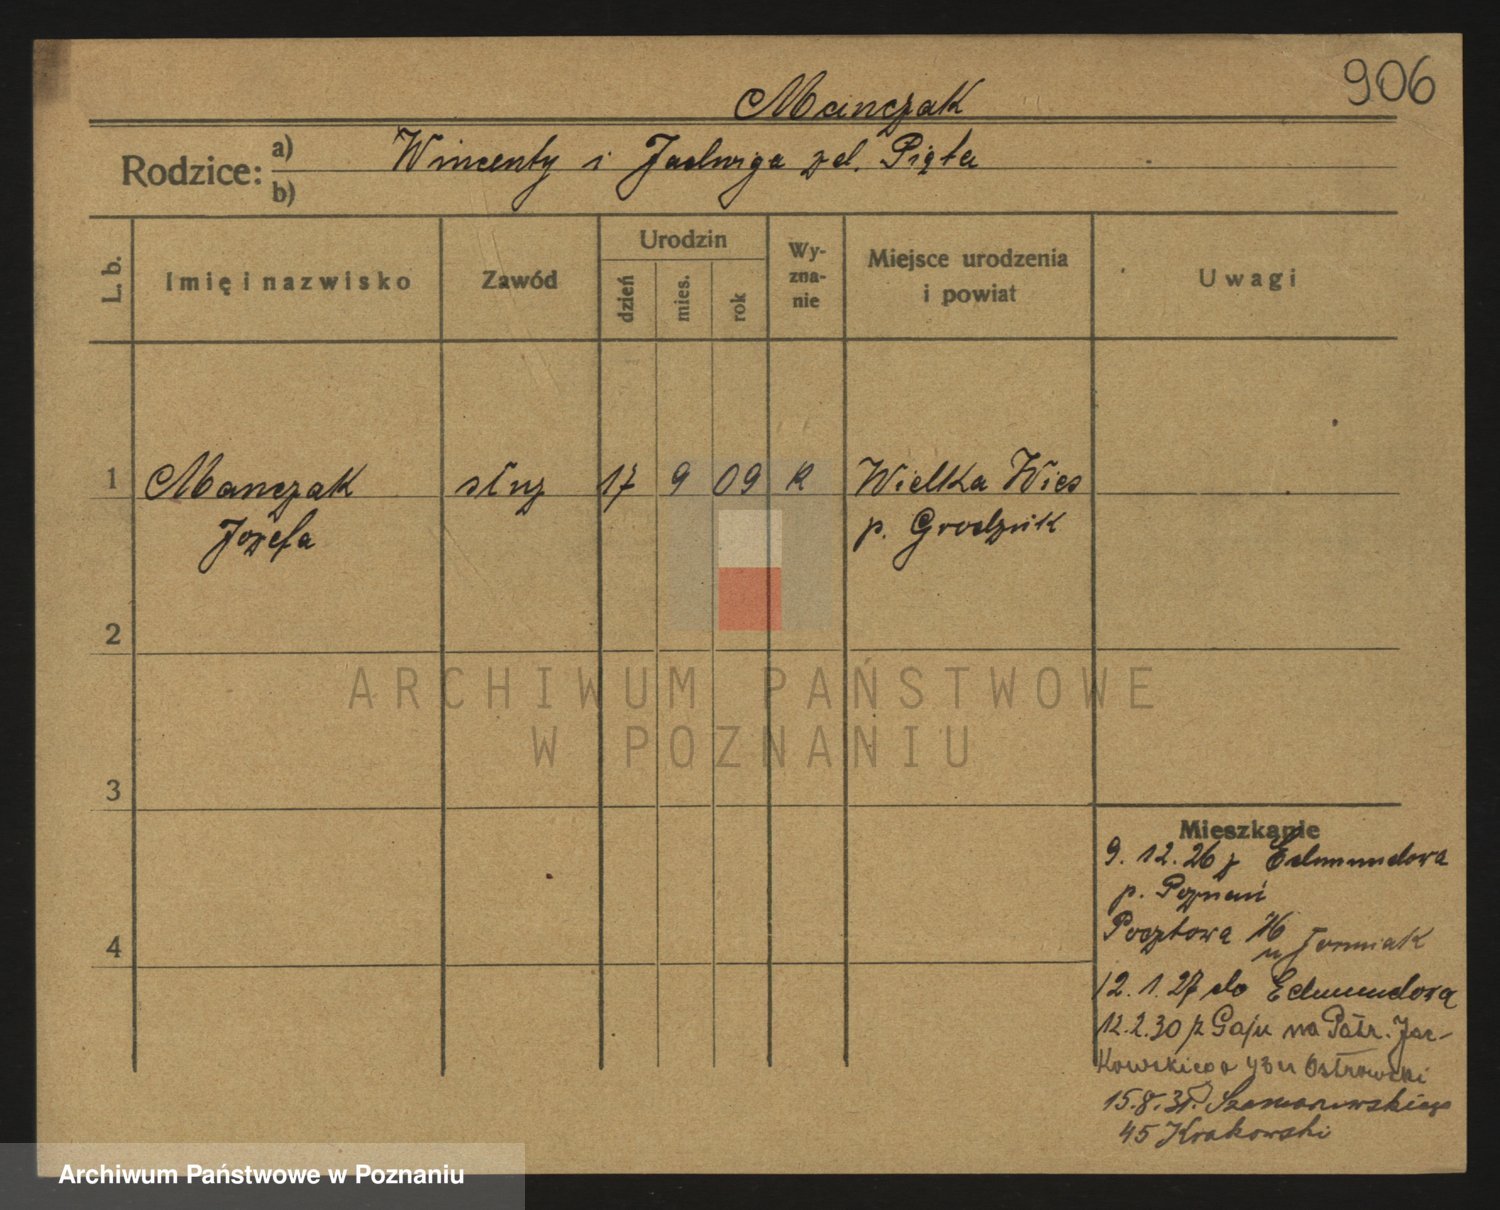 906
Manczak
Rodzice: a) Wincenty i Jadwiga zd. Pięta
b)
L. b. Imię i nazwisko Zawód Urodzin dzień mies. rok Wyznanie Miejsce urodzenia i powiat Uwagi
1 Manczak służ 17 9 09 k Wielka Wies
Jozefa p. Grodzisk
2
3
4
Mieszkanie
9. 12. 26 z Edmundowa
p. Poznań
Pocztowa 16
u
12. 1. 27 do Edmundowa
12. 2. 30 z Gaju na Patr. Jac-
kowskiego 43 u Ostrowski
15. 8. 31. Szamarzewskiego
45 Krakowski
ARCHIWUM PAŃSTWOWE
W POZNANIU
Archiwum Państwowe w Poznaniu